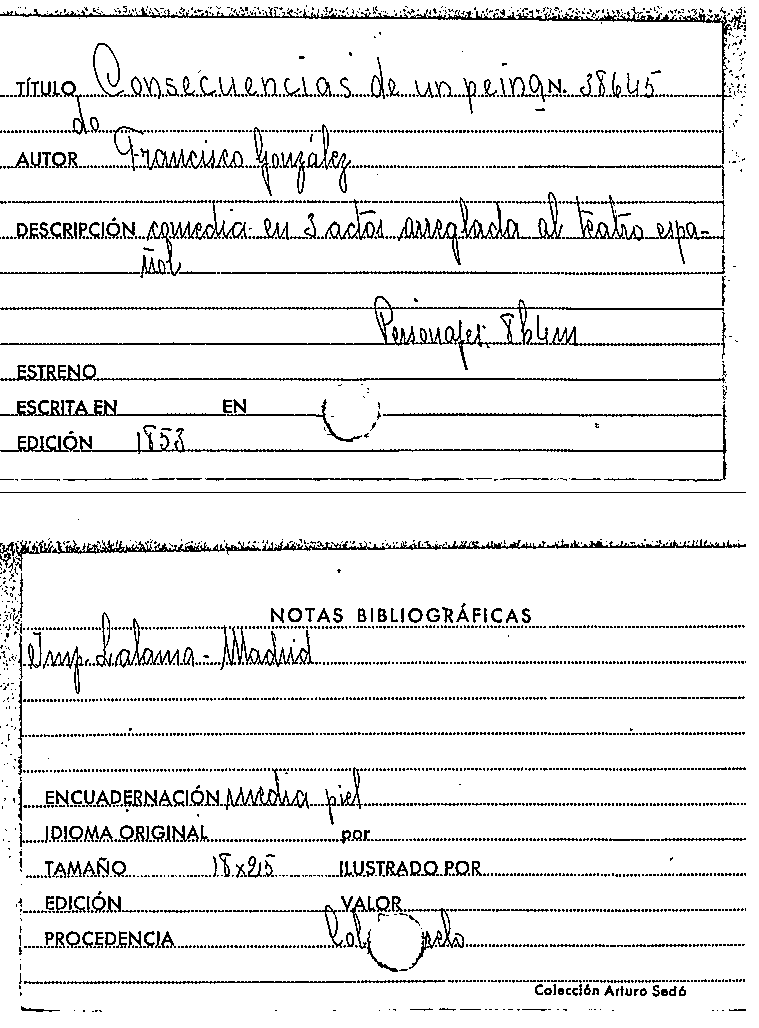 TÍTULO Consecuencias de un peina N. 38645
do
AUTOR Francisco González
DESCRIPCIÓN comedia en 3 actos arreglada al teatro espa-
ñol
Personajes: 8h4m
ESTRENO
ESCRITA EN EN
EDICIÓN 1853
NOTAS BIBLIOGRÁFICAS
Imp. Lalama - Madrid
ENCUADERNACIÓN media piel
IDIOMA ORIGINAL por
TAMAÑO 18x25 ILUSTRADO POR
EDICIÓN VALOR
PROCEDENCIA
Colección Arturo Sedó